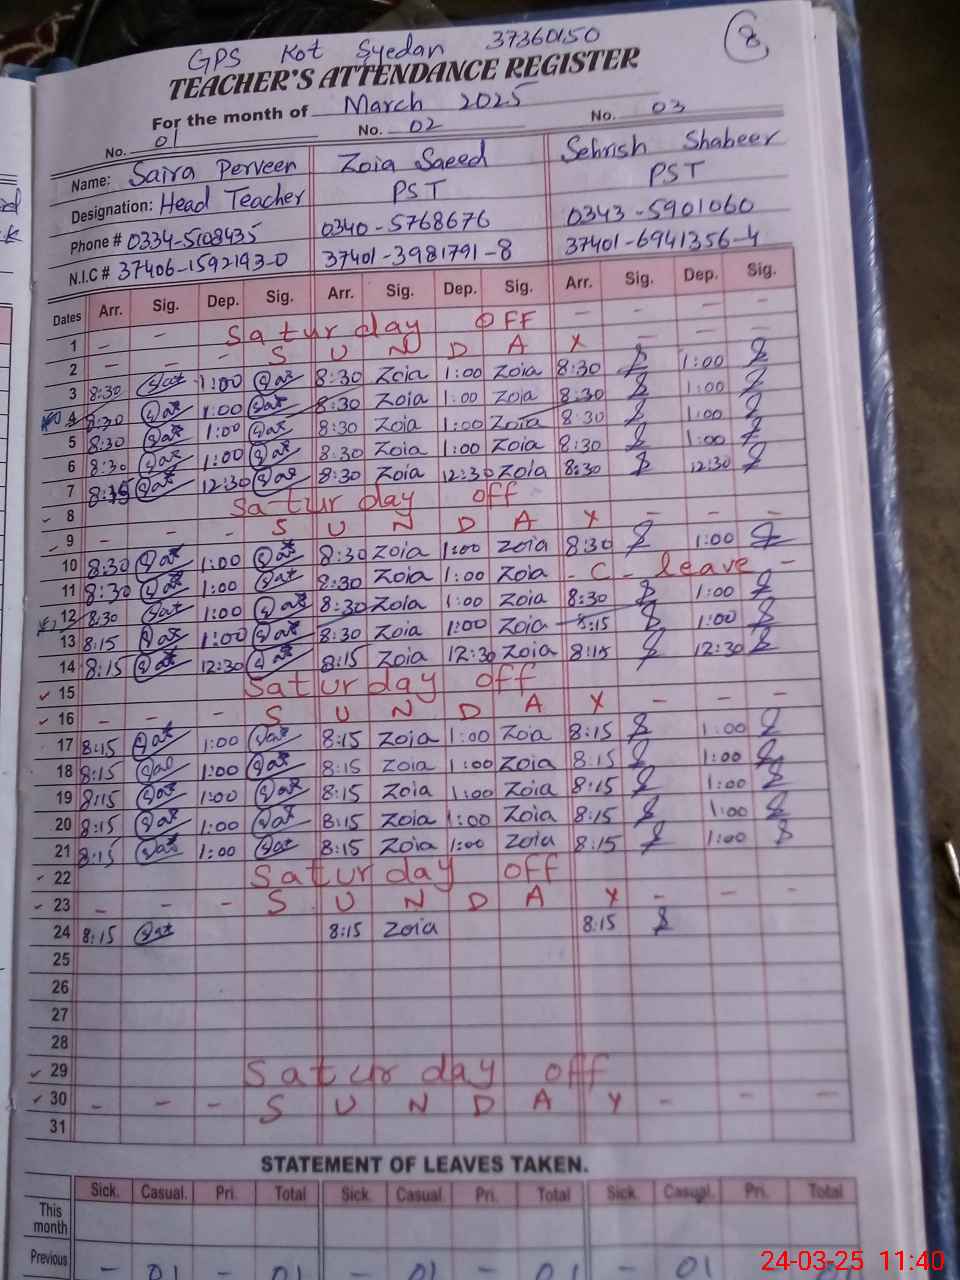 8
GPS Kot Syedan 37360150
TEACHER'S ATTENDANCE REGISTER
For the month of March 2025
No. 01 No. 02 No. 03
Name: Saira Perveen Zoia Saeed Sehrish Shabeer
Designation: Head Teacher PST PST
Phone # 0334-5108435 0340-5768676 0343-5901060
N.I.C # 37406-1592193-0 37401-3981791-8 37401-6941356-4
Dates Arr. Sig. Dep. Sig. Arr. Sig. Dep. Sig. Arr. Sig. Dep. Sig.
1 - - Saturday OFF - - - -
2 - - - S U N D A Y - - -
3 8:30 1:00 8:30 Zoia 1:00 Zoia 8:30 1:00
4 8:30 1:00 8:30 Zoia 1:00 Zoia 8:30 1:00
5 8:30 1:00 8:30 Zoia 1:00 Zoia 8:30 1:00
6 8:30 1:00 8:30 Zoia 1:00 Zoia 8:30 1:00
7 8:15 12:30 8:30 Zoia 12:30 Zoia 8:30 12:30
8 Saturday off
9 - - - S U N D A Y - - -
10 8:30 1:00 8:30 Zoia 1:00 Zoia 8:30 1:00
11 8:30 1:00 8:30 Zoia 1:00 Zoia - C - leave -
12 8:30 1:00 8:30 Zoia 1:00 Zoia 8:30 1:00
13 8:15 1:00 8:30 Zoia 1:00 Zoia 8:15 1:00
14 8:15 12:30 8:15 Zoia 12:30 Zoia 8:15 12:30
15 Saturday off
16 - - - S U N D A Y - - -
17 8:15 1:00 8:15 Zoia 1:00 Zoia 8:15 1:00
18 8:15 1:00 8:15 Zoia 1:00 Zoia 8:15 1:00
19 8:15 1:00 8:15 Zoia 1:00 Zoia 8:15 1:00
20 8:15 1:00 8:15 Zoia 1:00 Zoia 8:15 1:00
21 8:15 1:00 8:15 Zoia 1:00 Zoia 8:15 1:00
22 Saturday off
23 - - - S U N D A Y - - -
24 8:15 8:15 Zoia 8:15
25
26
27
28
29 Saturday off
30 - - - S U N D A Y - - -
31
STATEMENT OF LEAVES TAKEN.
Sick. Casual. Pri. Total Sick. Casual. Pri. Total Sick. Casual. Pri. Total
This month
Previous - 01 - 01 - 01 - 01 - 01
24-03-25 11:40